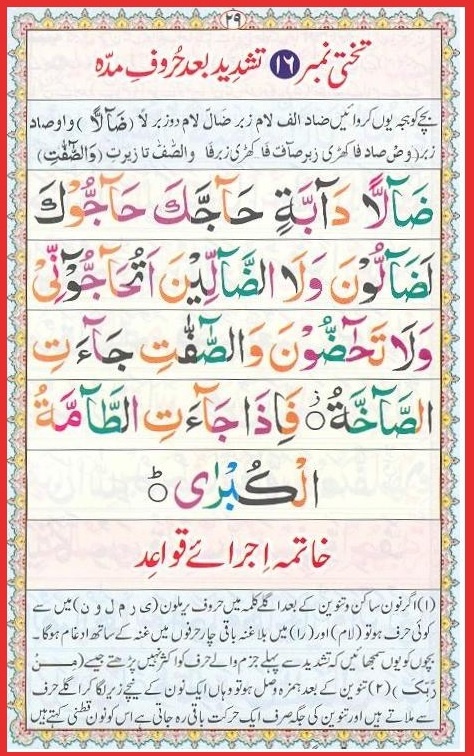 ٢٩
تختی نمبر ١٦ تشدید بعد حُروفِ مدّہ
بچے کو ہجہ یوں کروائیں ضاد الف لام زبر ضَالَ لام دو زبر لاً (ضَآلًّا) واو صاد
زبر (وَصْ صاد فا کھڑی زبر صآفّ فا کھڑی زبر فَا وَالصّٰٓفّٰ تا زیرتِ (وَالصّٰٓفّٰتِ)
ضَآلًّا دَآبَّةٍ حَآجَّكَ حَآجُّوْكَ
لَضَآلُّوْنَ وَلَا الضَّآلِّيْنَ اَتُحَآجُّوْٓنِّيْ
وَلَا تَحٰٓضُّوْنَ وَالصّٰٓفّٰتِ جَآءَتِ
الصَّآخَّةُ ۞ فَاِذَا جَآءَتِ الطَّآمَّةُ
الْكُبْرٰى
خاتمہ اِجرائے قواعِد
(١) اگر نون ساکن و تنوین کے بعد اگلے کلمہ میں حروف یرملون (ی ر م ل و ن) میں سے
کوئی حرف ہو تو (لام) اور (را) میں بلا غنہ باقی چار حرفوں میں غنہ کے ساتھ ادغام ہوگا۔
بچوں کو یوں سمجھائیں کہ تشدید سے پہلے جزم والے حرف کو اکثر نہیں پڑھتے جیسے (مِنْ
رَّبِّكَ) (٢) تنوین کے بعد ہمزہ وصل ہو تو وہاں ایک نون کے نیچے زیر لگا کر اگلے حرف
سے ملاتے ہیں اور تنوین کی جگہ صرف ایک حرکت باقی رہ جاتی ہے اس کو نون قطنی کہتے ہیں